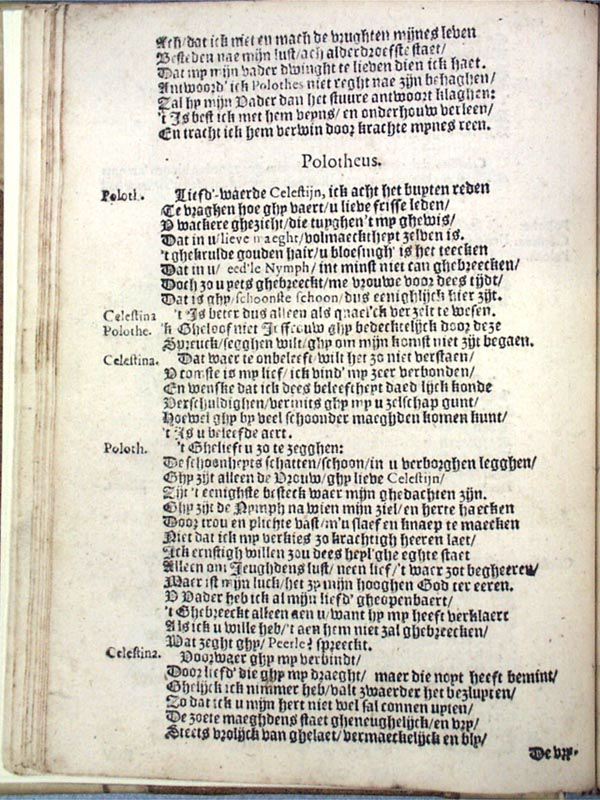 Ach/dat ick niet en mach de vrughten mijnes leven
Besteden nae mijn lust/ach alderdroefste staet/
Dat my mijn vader dwinght te lieven dien ick haet.
Antwoord' ick Polothes niet reght nae zijn behaghen/
Zal hy mijn Vader dan het stuure antwoort klaghen:
't Is best ick met hem veyns/ en onderhouw verleen/
En tracht ick hem verwin door krachte mynes reen.
Polotheus.
Poloth. Liefd'-waerde Celestijn, ick acht het buyten reden
Te vraghen hoe ghy vaert/u lieve frisse leden/
V wackere ghezicht/die tuyghen't my ghewis/
Dat in u/lieve maeght/volmaecktheyt zelven is.
't ghekrulde gouden hair/u bloesingh' is het teecken
Dat in u/ eed'le Nymph/ int minst niet can ghebreecken/
Doch zo u yets ghebreeckt/me vrouwe voor dees tijdt/
Dat is ghy/schoonste schoon/dus eenighlijck hier zijt.
Celestina 't Is beter dus alleen als qualick verzelt te wesen.
Polothe. 'k Gheloof niet Jeffrouw ghy bedecktelijck door deze
Spreuck/segghen wilt/ghy om mijn komst niet zijt begaen.
Celestina. Dat waer te onbeleeft/wilt het zo niet verstaen/
V comste is my lief/ick vind' my zeer verbonden/
En wenske dat ick dees beleefcheyt daed lijck konde
Verschuldighen/vermits ghy my u zelschap gunt/
Hoewel ghy by veel schoonder maeghden komen kunt/
't Is u beleefde aert.
Poloth. 't Ghelieft u zo te zegghen:
De schoonheyts schatten/schoon/in u verborghen legghen/
Ghy zijt alleen de Vrouw/ghy lieve Celestijn/
Zijt 't eenighste besteck waer mijn ghedachten zijn.
Ghy zijt de Nymph na wien mijn ziel/en herte haecken
Door trou en plichte vast/m'u slaef en knaep te maecken
Niet dat ick my verkies zo krachtigh heeren laet/
Ick ernstigh willen zou dees heyl'ghe eghte staet
Alleen om Jeughdens lust/ neen lief/'t waer zot begheeren/
Maer ist mijn luck/het zy mijn hooghen God ter eeren.
V Vader heb ick al mijn liefd' gheopenbaert/
't Ghebreeckt alleen aen u/want hy my heeft verklaert
Als ick u wille heb/'t aen hem niet zal ghebreecken/
Wat zeght ghy/ Peerle? spreeckt.
Celestina. Voorwaer ghy my verbindt/
Door liefd' die ghy my draeght/ maer die noyt heeft bemint/
Ghelijck ick nimmer heb/valt zwaerder het bezluyten/
Zo dat ick u mijn hert niet wel sal connen uyten/
De zoete maeghdens staet gheneughelijck/en vry/
Steets vrolijck van ghelaet/vermaeckelijck en bly/
De vry-